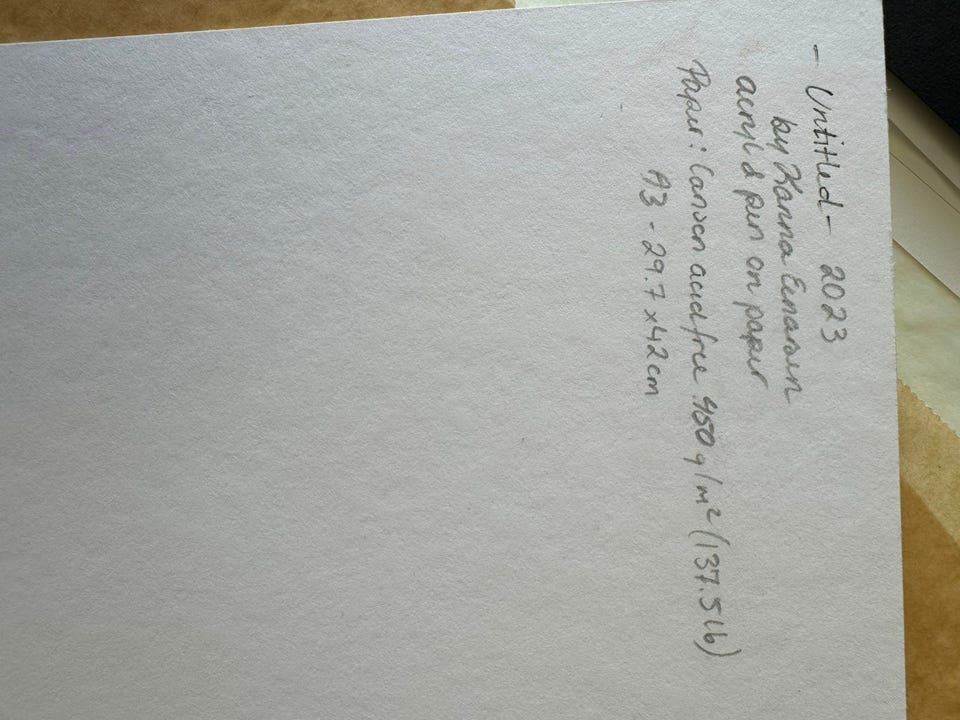 - Untitled - 2023
by Hanna Einarsen
acryl & pen on paper
Paper: Canson acid free 450 g/m² (137.5 lb)
A3 - 29.7 x 42 cm